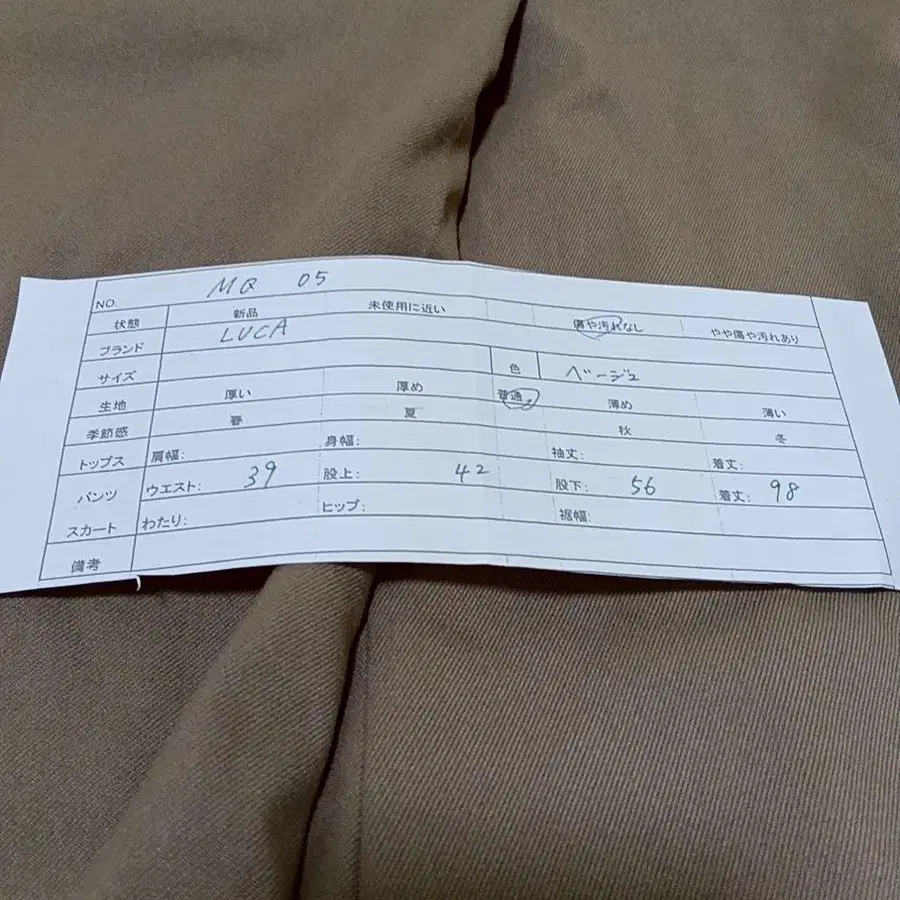 NO. MQ 05
状態 新品 未使用に近い 傷や汚れなし やや傷や汚れあり
ブランド LUCA
サイズ 色 ベージュ
生地 厚い 厚め 普通 薄め 薄い
季節感 春 夏 秋 冬
トップス 肩幅: 身幅: 袖丈: 着丈:
パンツ ウエスト: 39 股上: 42 股下: 56 着丈: 98
スカート わたり: ヒップ: 裾幅:
備考